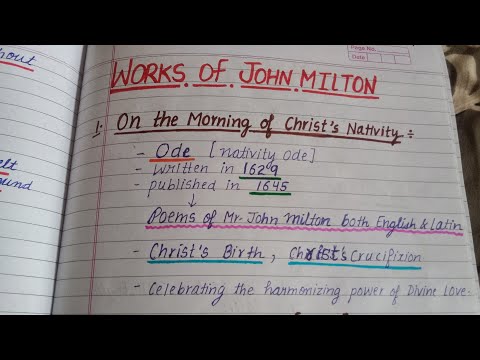 hout
Page No.
Date
WORKS OF JOHN MILTON
1. On the Morning of Christ's Nativity :-
- Ode [nativity ode]
- written in 1629
- published in 1645
↓
Poems of Mr. John milton both English & Latin
- Christ's Birth, Christ's Crucifixion
- Celebrating the harmonizing power of Divine Love.
elt
ound